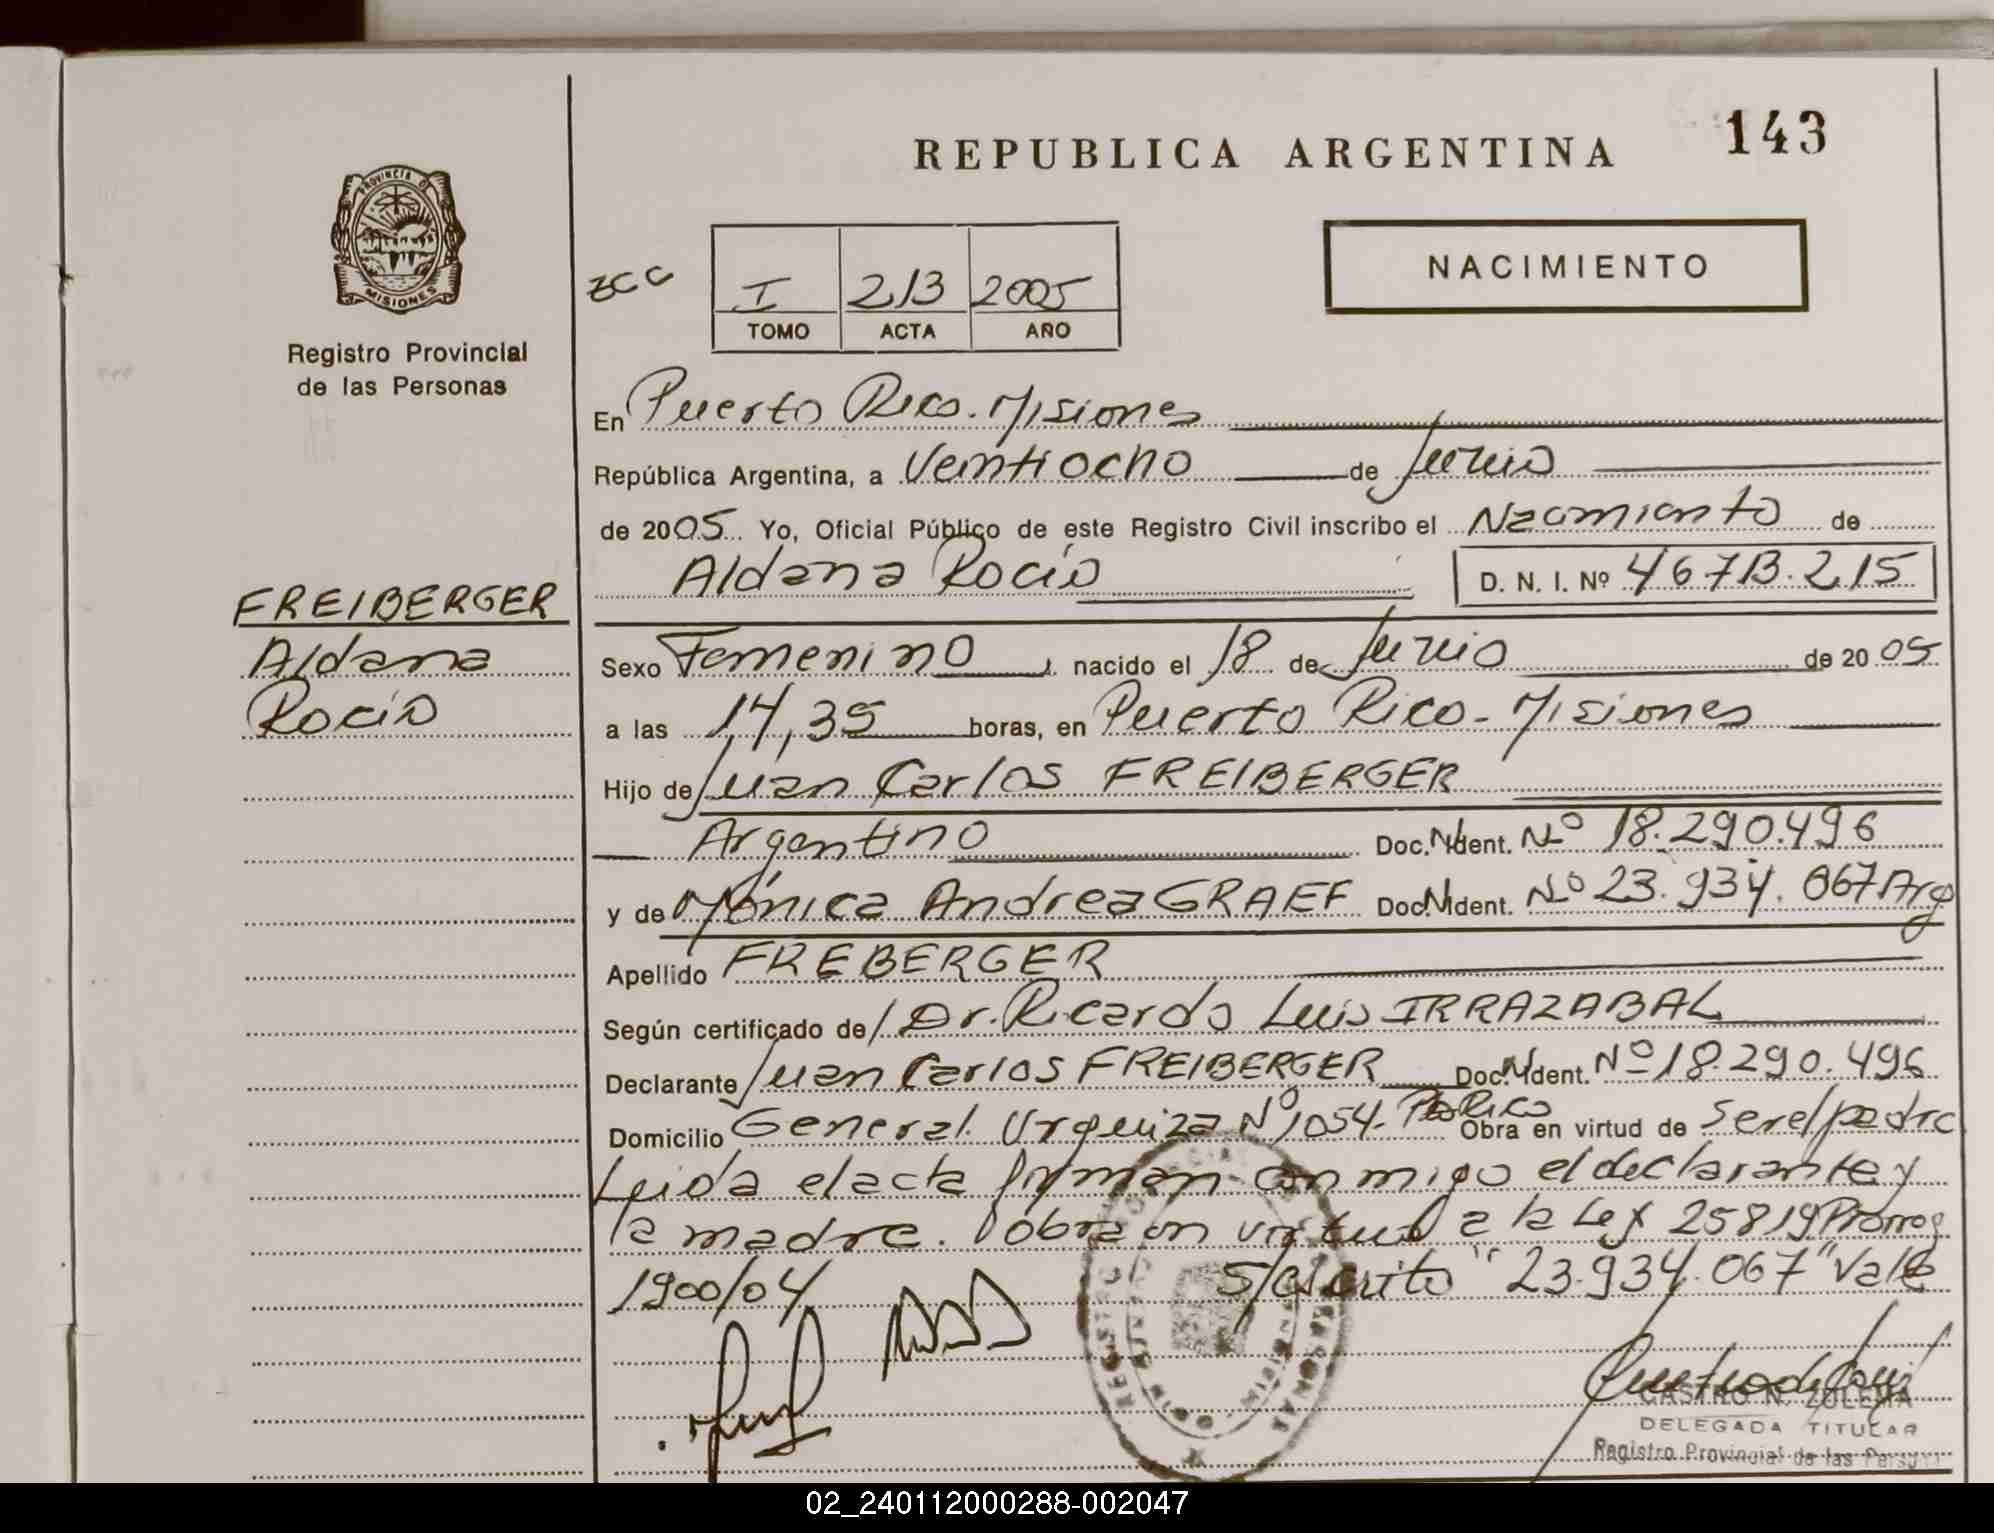 143
REPUBLICA ARGENTINA
PROVINCIA DE
MISIONES
Registro Provincial
de las Personas
ZCC
I 213 2005
TOMO ACTA AÑO
NACIMIENTO
En Puerto Rico. Misiones
República Argentina, a Veintiocho de Junio
de 2005 Yo, Oficial Público de este Registro Civil inscribo el Nacimiento de
Aldana Rocío D. N. I. Nº 46713.215
FREIBERGER
Aldana
Rocío
Sexo Femenino nacido el 18 de Junio de 2005
a las 14,35 horas, en Puerto Rico - Misiones
Hijo de Juan Carlos FREIBERGER
Argentino Doc. Ident. Nº 18.290.496
y de Mónica Andrea GRAEF Doc. Ident. Nº 23.934.067 Arg
Apellido FREBERGER
Según certificado de Dr. Ricardo Luis IRRAZABAL
Declarante Juan Carlos FREIBERGER Doc. Ident. Nº 18.290.496
Domicilio General Urquiza Nº 1054- Pto Rico Obra en virtud de Ser el padre
Leida el acta firman conmigo el declarante y
la madre. Obra en virtud a la Ley 25819 Prorrog
1900/04 S/escrito "23.934.067" Vale
CASTRO N. ZULEMA
DELEGADA TITULAR
Registro Provincial de las Personas
02_240112000288-002047